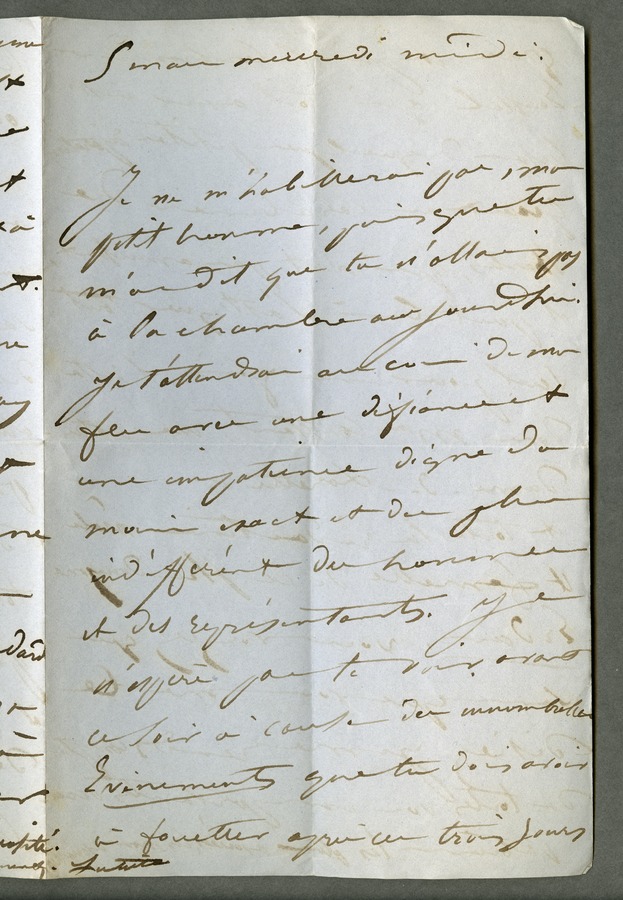 5 mars mercredi midi.
Je ne m'habillerai pas, mon
petit homme, puisque tu
m'as dit que tu n'allais pas
à la chambre aujourd'hui.
Je t'attendrai au coin de mon
feu avec une défiance et
une impatience digne du
moins exact et du plus
indifférent des hommes
et des représentants. Je
n'espère pas te voir avant
ce soir à cause des innombrables
Evènements que tu dois avoir
à fouetter après ces trois jours